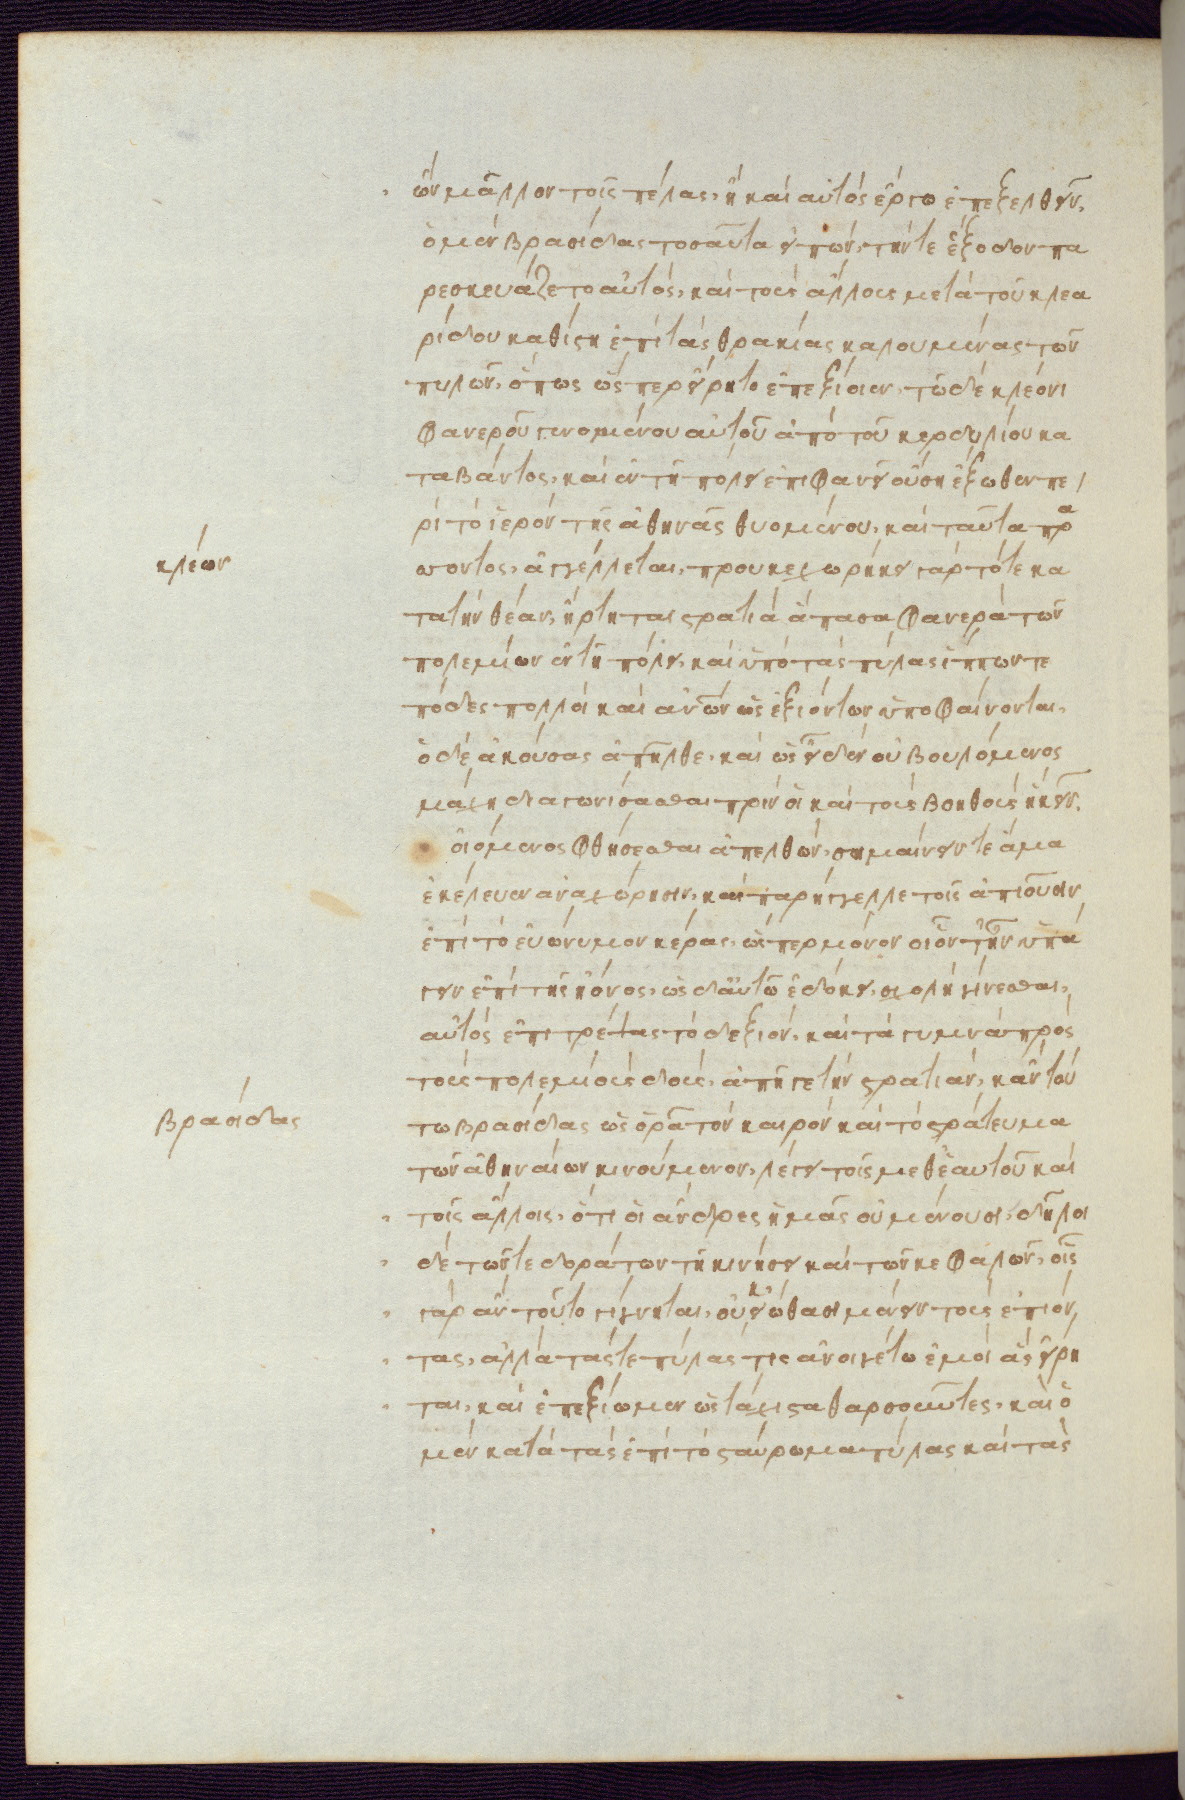 ὢν μᾶλλον τοῖς πέλας, ἢ καὶ αὐτὸς ἔργῳ ἐπεξελθεῖν.
ὁ μὲν βρασίδας τοσαῦτα εἰπὼν, τήν τε ἔξοδον πα
ρεσκευάζετο αὐτὸς, καὶ τοὺς ἄλλους μετὰ τοῦ κλεα
ρίδου καθίστη ἐπὶ τὰς θρακίας καλουμένας τῶν
πυλῶν, ὅπως ὥσπερ εἴρητο ἐπεξίοιεν, τῷ δὲ κλέονι
φανεροῦ γενομένου αὐτοῦ ἀπὸ τοῦ κερδυλίου κα
ταβάντος, καὶ ἐν τῇ πόλει ἐπιφανεῖ οὔσῃ ἔξωθεν πε
ρὶ τὸ ἱερὸν τῆς ἀθηνᾶς θυομένου, καὶ ταῦτα πρα
κλέων
σσοντος, ἀγγέλλεται, προυκεχωρήκει γὰρ τότε κα
τὰ τὴν θέαν, ἥ
πολεμίων ἐν τῇ πόλει, καὶ ὑπὸ τὰς πύλας ἵππων τε
πόδες πολλοὶ καὶ ἀνῶν ὡς ἐξιόντων ὑποφαίνονται,
ὁ δὲ ἀκούσας ἐπῆλθε, καὶ ὡς εἶδεν οὐ βουλόμενος
μάχῃ διαγωνίσασθαι πρίν οἱ καὶ τοὺς βοηθοὺς ἥκειν.
οἰόμενος φθήσεσθαι ἀπελθών, σημαίνειν τε ἅμα
ἐκέλευεν ἀναχώρησιν, καὶ παρήγγελλε τοῖς ἀπιοῦσιν
ἐπὶ τὸ εὐώνυμον κέρας, ὥσπερ μόνον οἷόν τ' ἦν ὑπά
γειν ἐπὶ τῆς ἠόνος, ὡς δ' αὐτῷ ἐδόκει, σχολῇ γίνεσθαι,
αὐτὸς ἐπιτρέψας τὸ δεξιόν, καὶ τὰ γυμνὰ πρὸς
τοὺς πολεμίους δοὺς, ἀπῆγε τὴν στρατιάν, κἀν τού
βρασίδας
τῳ βρασίδας ὡς ὁρᾷ τὸν καιρὸν καὶ τὸ στράτευμα
τῶν ἀθηναίων κινούμενον, λέγει τοῖς μεθ' ἑαυτοῦ καὶ
τοῖς ἄλλοις, ὅτι οἱ ἄνδρες ἡμᾶς οὐ μένουσι, δῆλοι
δὲ τῶν τε δοράτων τῇ κινήσει καὶ τῶν κεφαλῶν, οἷς
γὰρ ἂν τοῦτο γίγνηται, οὐκ εἰώθασι μένειν τοὺς ἐπιόν
τας, ἀλλὰ τάς τε πύλας τις ἀνοιγέτω ἐμοὶ ἃς εἴρη
ται, καὶ ἐπεξίωμεν ὡς τάχιστα θαρσοῦντες, καὶ ὁ
μὲν κατὰ τὰς ἐπὶ τὸ σταύρωμα πύλας καὶ τὰς